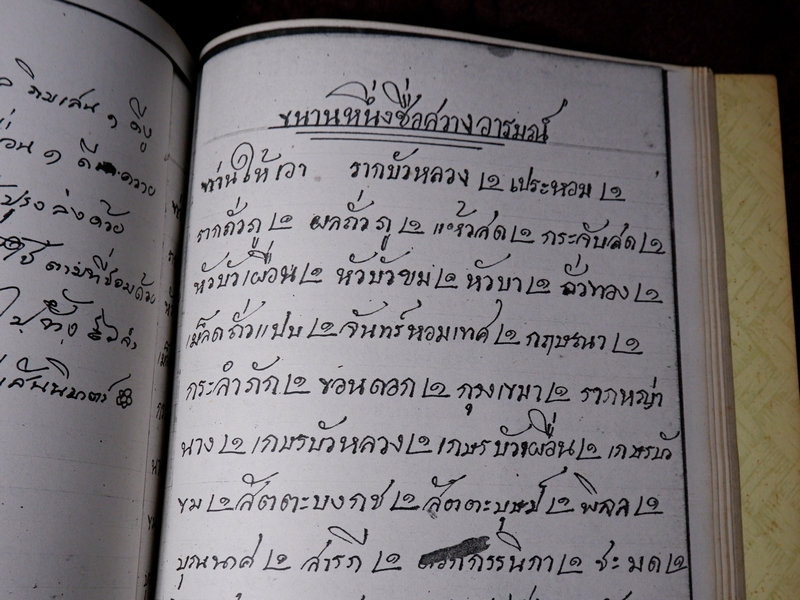 กิมเสน ๑ ดีงู
๑ ดี ควาย
ปรุง ลง ด้วย
ใช้ ตามที่ชอบด้วย
ขนานหนึ่งชื่อสวางอารมณ์
ท่านให้เอา รากบัวหลวง ๒ เประหอม ๒
รากถั่วภู ๒ ผลถั่วภู ๒ แห้วสด ๒ กระจับสด ๒
หัวบัวเผื่อน ๒ หัวบัวขม ๒ หัวบา ๒ ถั่วทอง ๒
เมล็ดถั่วแปบ ๒ จันทร์หอมเทศ ๒ กฤษณา ๒
กระลำภัก ๒ ขอนดอก ๒ กรุงเขมา ๒ รากหญ้า
นาง ๒ เกษรบัวหลวง ๒ เกษรบัวเผื่อน ๒ เกษรบัว
ขม ๒ สัตตะบงกช ๒ สัตตะบุษป์ ๒ พิกุล ๒
บุนนาค ๒ สารภี ๒ กรรนิกา ๒ ชะมด ๒